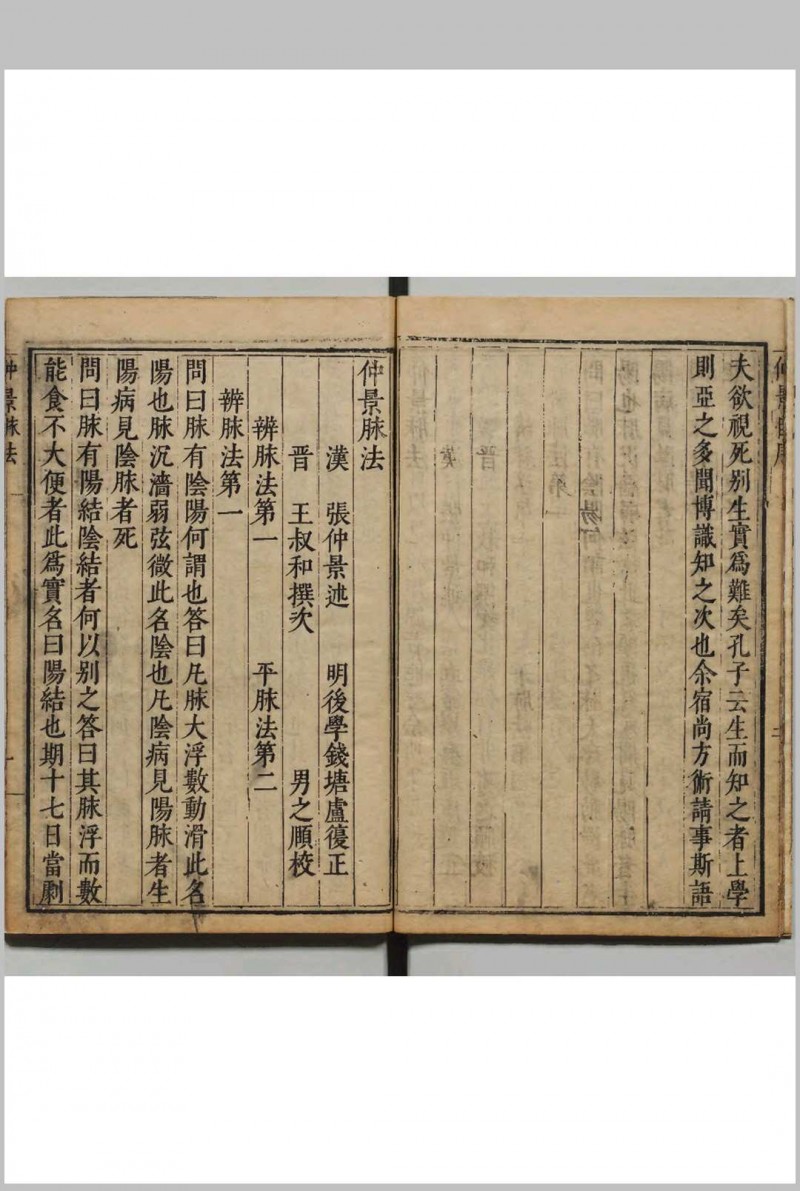 夫欲視死别生實爲難矣孔子云生而知之者上學
則亞之多聞博識知之次也余宿尚方術請事斯語
仲景脉法
漢 張仲景述 明後學錢塘盧復正
晋 王叔和撰次 男之頤校
辨脉法第一 平脉法第二
辨脉法第一
問曰脉有陰陽何謂也答曰凢脉大浮數動滑此名
陽也脉沉濇弱弦微此名陰也凢陰病見陽脉者生
陽病見陰脉者死
問曰脉有陽結陰結者何以别之答曰其脉浮而數
能食不大便者此爲實名曰陽結也期十七日當劇
仲景脉法 一